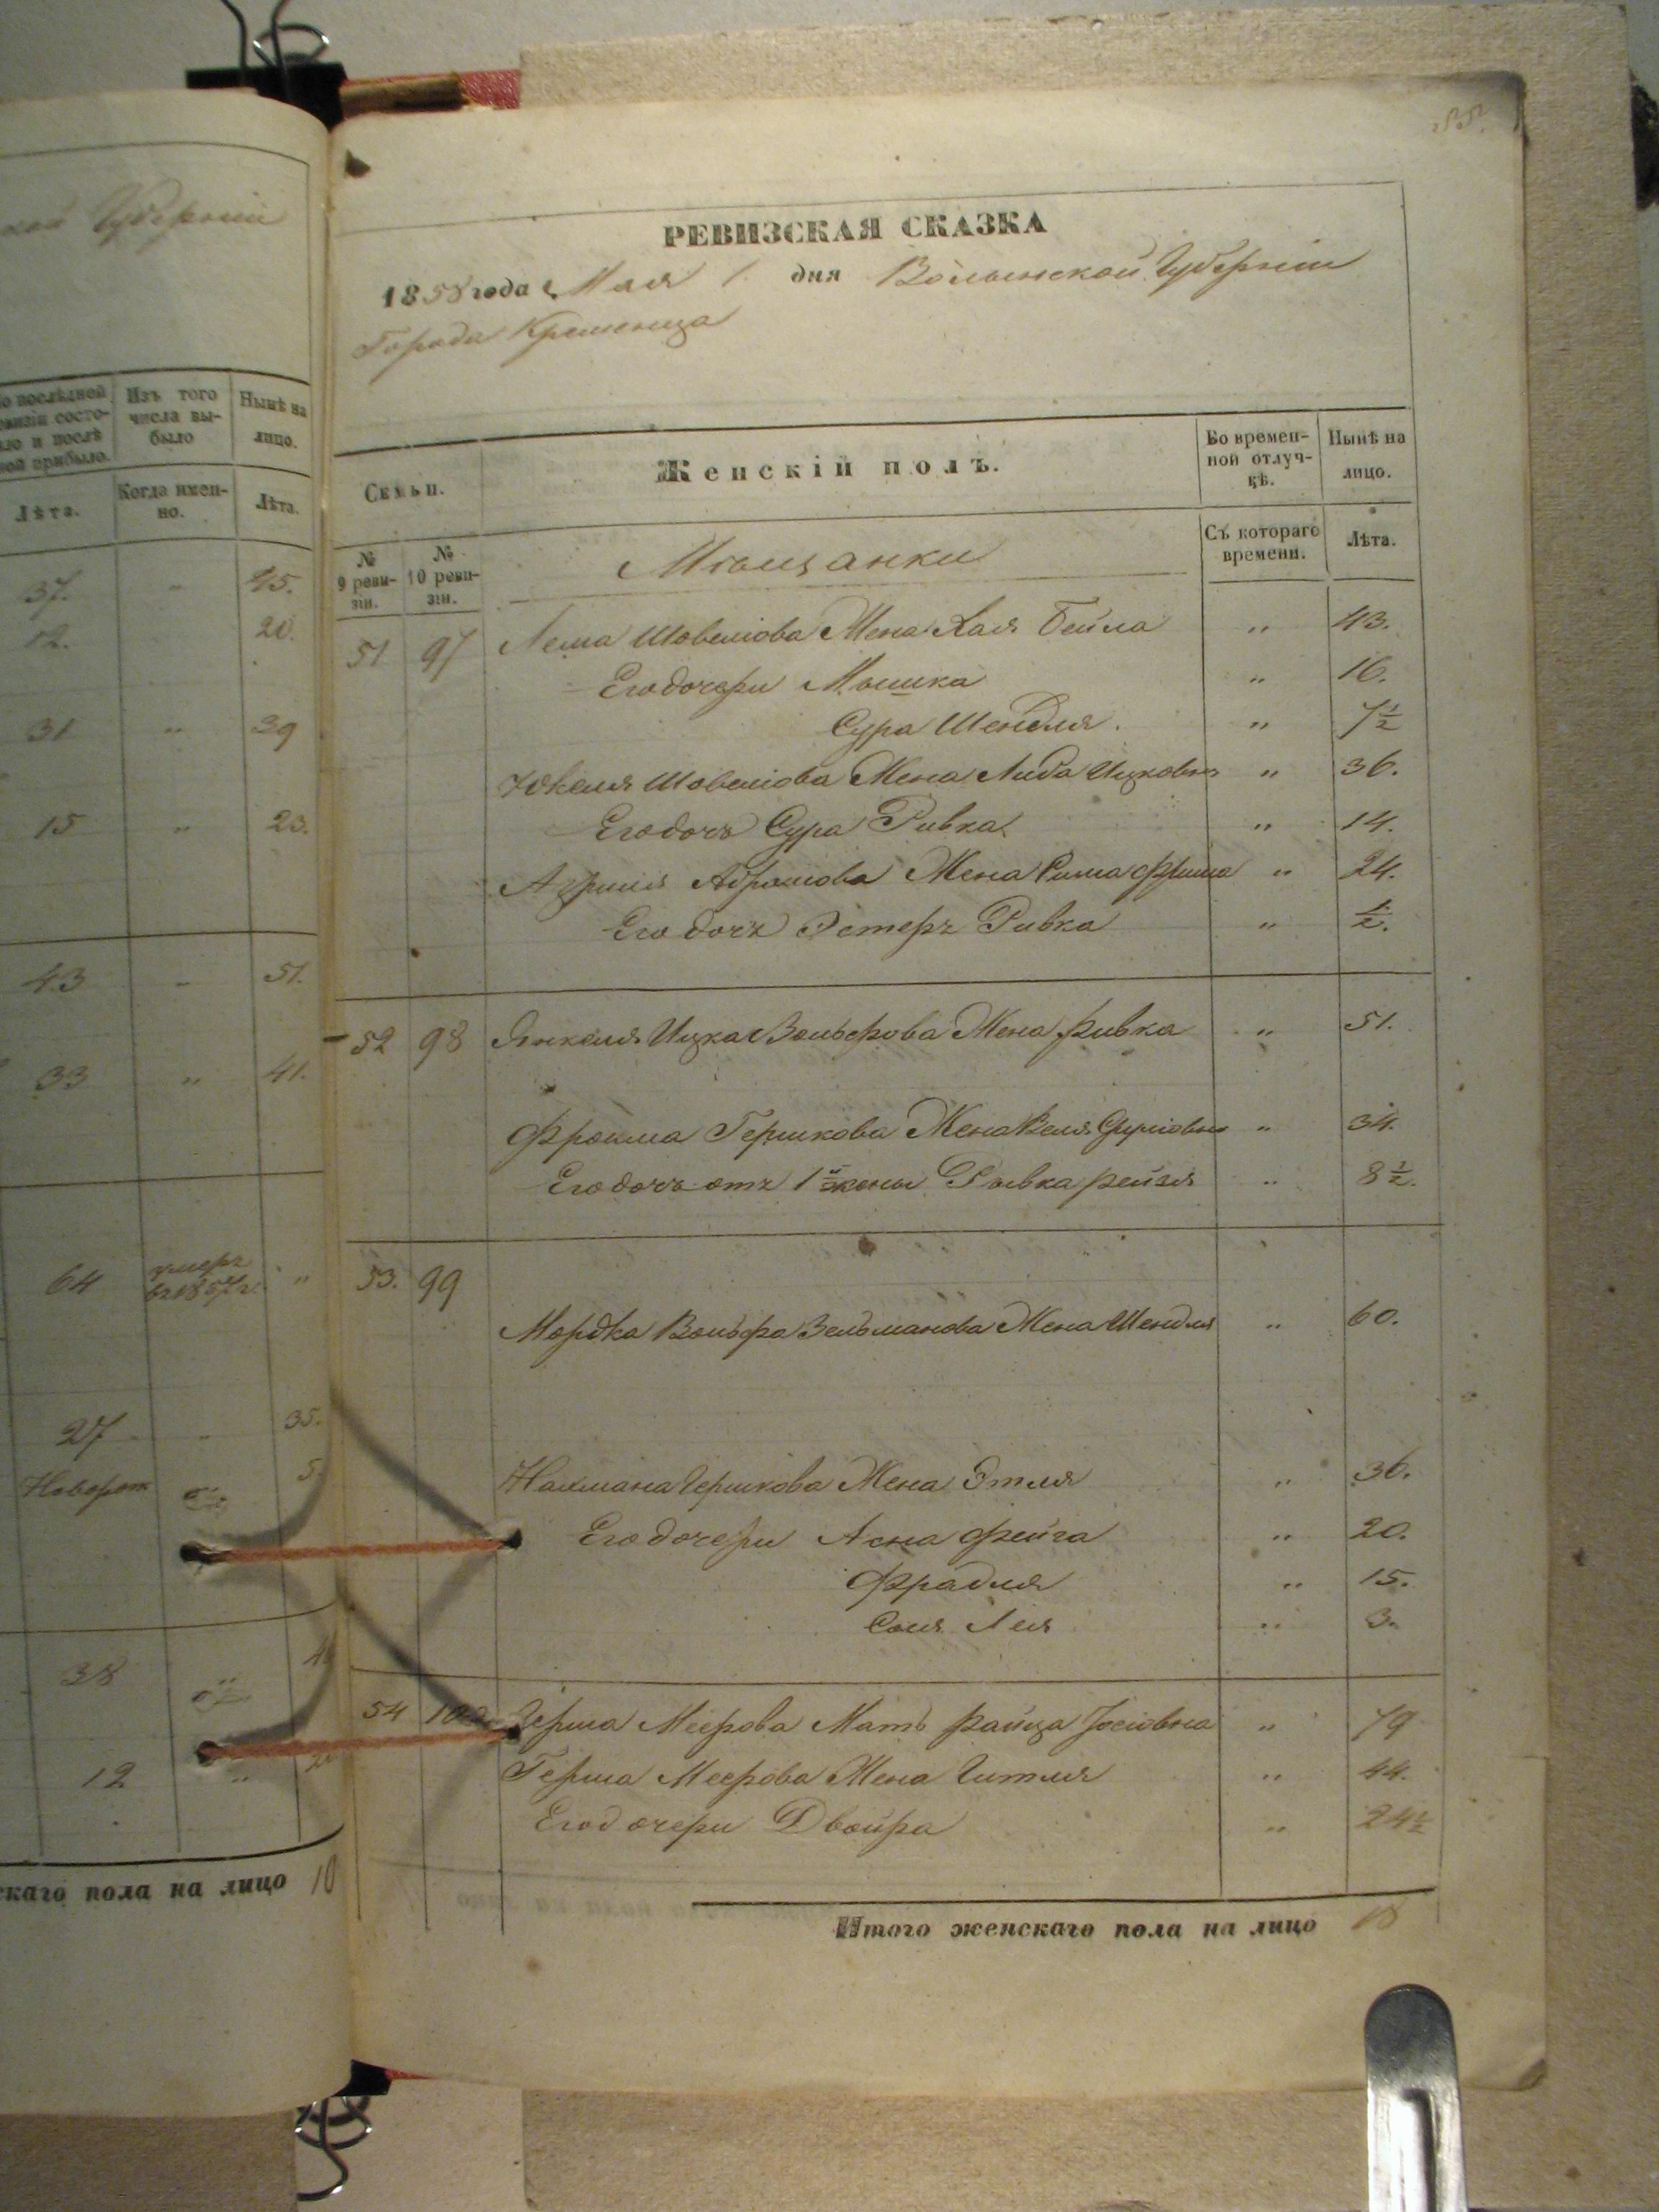 кой Губерніи
о послѣдней
ревизіи состо-
яло и послѣ
ной прибыло.
Изъ того
числа вы-
было
Нынѣ на
лицо.
Лѣта.
Когда имен-
но.
Лѣта.
37. " 45.
12. 20.
31 " 39
15 " 23.
43 - 51.
33 " 41.
64 умеръ въ 1857 г. "
27 - 35.
Новорож 5
38
12 "
скаго пола на лицо 10
РЕВИЗСКАЯ СКАЗКА
1858 года Мая 1 дня Волынской Губерніи
Города Кременца
Семьи.
Женскій полъ.
Во времен-
ной отлуч-
кѣ.
Нынѣ на
лицо.
№
9 реви-
зіи.
№
10 реви-
зіи.
Мѣщанки
Съ котораго
времени.
Лѣта.
51 97 Лема Шовеліова Жена Хая Бейла " 43.
Его дочери Мышка " 16.
Сура Шендля. " 7½
Юкеля Шовеліова Жена Либа Ицковна " 36.
Его дочь Сура Ривка " 14.
Абрамова Жена Сима Фрима " 24.
Его дочь Эстеръ Ривка " ½.
52 98 Янкеля Ицка Вольфова Жена Ривка " 51.
Фроима Гершкова Жена " 34.
Его дочь отъ 1й жены Рывка Рейзя " 8½.
53. 99
Мордка Вольфа Зельманова Жена Шендля " 60.
Нахмана Гершкова Жена Этля " 36.
Его дочери Асна Фейга " 20.
Фрадля " 15.
Соня Лея " 3.
54 100 Герша Меерова Мать Райца Іосіовна " 79
Герша Меерова Жена Гитля " 44.
Его дочери Двойра " 24½
Итого женскаго пола на лицо 18